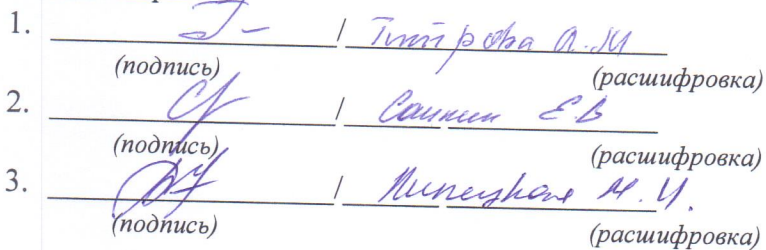 1. / Титрова А.М
(подпись) (расшифровка)
2. / Санкин Е В
(подпись) (расшифровка)
3. / Липецкая М. И.
(подпись) (расшифровка)